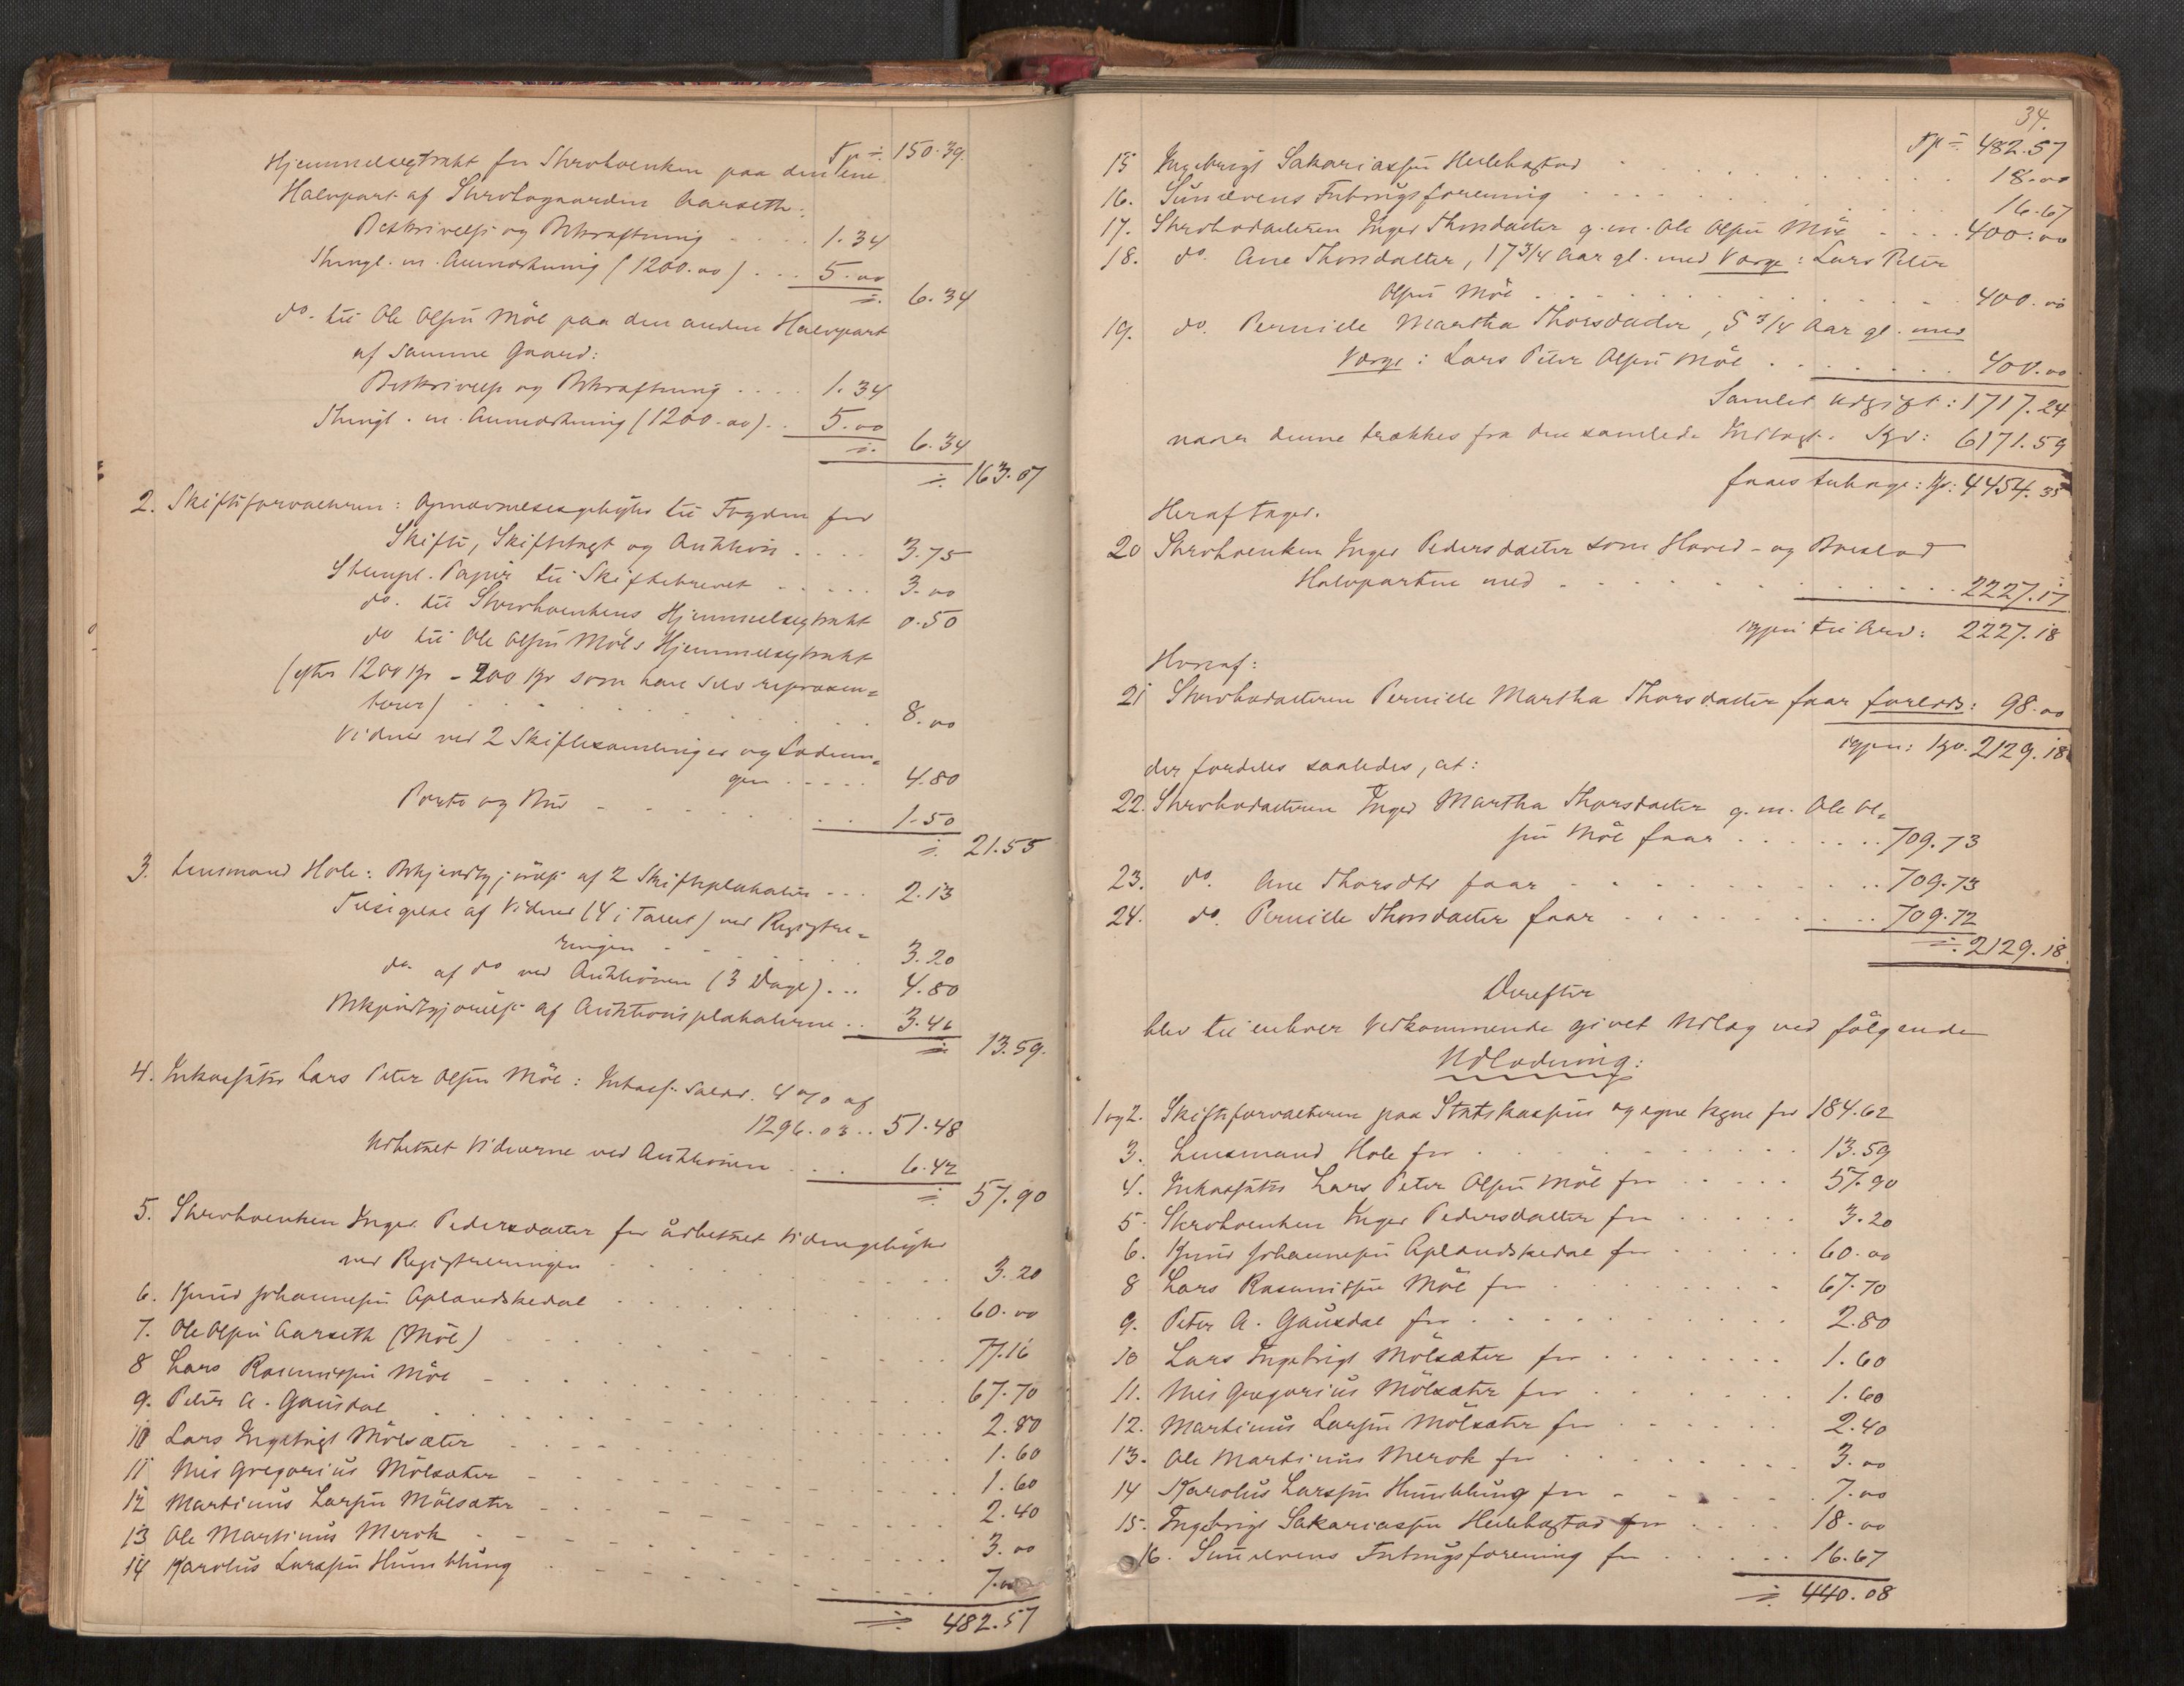 Tp ÷ 150.39
Hjemmelsextrakt for Sterboenken paa den ene
Halvpart af Sterbogaarden Aarseth:
Beskrivelse og Bekræftning .... 1.34
Thingl. m. Anmærkning (1200.00) ... 5.00
÷ 6.34
do. til Ole Olsen Möl paa den anden Halvpart
af samme Gaard:
Beskrivelse og Bekræftning .... 1.34
Thingl. m. Anmærkning (1200.00) .. 5.00
÷ 6.34
÷ 163.07
2. Skifteforvalteren: Opnævnelsesgebyhr til Fogden for
Skifte, Skiftetaxt og Auktion .... 3.75
Stempl. Papir til Skiftebrevet ..... 3.00
do. til Sterboenkens Hjemmelsextrakt 0.50
do til Ole Olsen Möls Hjemmelsextrakt
(efter 1200 Kr - 200 Kr som han selv repræsen=
terer) 8.00
Vidner ved 2 Skiftesamlinger og Lodnin=
gen ..... 4.80
Porto og Bud 1.50
÷ 21.55
3. Lensmand Hole: Bekjendtgjörelse af 2 Skifteplakater ... 2.13
Tilsigelse af Vidner (4 i Tallet) ved Registre=
ringen 3.20
do. af do ved Auktionen (3 Dage) ... 4.80
Bekjendtgjörelse af Auktionsplakaterne .. 3.46
÷ 13.59.
4. Inkassator Lars Peter Olsen Möl: Inkass. Salær. 4 % af
1296.03 .. 51.48
Udbetalt Vidnerne ved Auktionen .... 6.42
÷ 57.90
5. Sterboenken Inger Pedersdatter for udbetalt Vidnegebyhr
ved Registreringen 3.20
6. Knud Johannesen Aplandskedal 60.00
7. Ole Olsen Aarseth (Möl) 77.16
8 Lars Rasmussen Möl 67.70
9. Peter A. Gausdal 2.80
10 Lars Ingebrigt Mölsæter 1.60
11 Nils Gregorius Mölsæter 1.60
12 Martinus Larsen Mölsæter 2.40
13 Ole Martinus Merok 3.00
14 Karolus Larssen Humblung 7.00
÷ 482.57
34.
Tp ÷ 482.57
15 Ingebrigt Sakariassen Hellebostad 18.00
16. Sunelvens Forbrugsforening 16.67
17. Sterbodatteren Inger Thorsdatter g.m. Ole Olsen Möl .... 400.00
18. do. Ane Thorsdatter, 17 3/4 Aar gl. med Værge: Lars Peter
Olsen Möl 400.00
19. do. Pernille Martha Thorsdatter, 5 3/4 Aar gl. med
Værge: Lars Peter Olsen Möl 400.00
Samlet Udgift: 1717.24
naar denne trækkes fra den samlede Indtægt. Kr: 6171.59
faaes tilbage: Kr: 4454.35
Heraf tager.
20 Sterboenken Inger Pedersdatter som Hoved- og Boeslod
Halvparten med 2227.17
igjen til Arv: 2227.18
Hvoraf:
21 Sterbodatteren Pernille Martha Thorsdatter faar forlods: 98.00
igjen: Kr. 2129.18
der fordeles saaledes, at:
22. Sterbodatteren Inger Martha Thorsdatter g.m. Ole Ol=
sen Möl faar 709.73
23. do. Ane Thorsdtr faar 709.73
24. do. Pernille Thorsdatter faar 709.72
÷ 2129.18.
Derefter
blev til enhver Vedkommende givet Udlæg ved fölgende
Udlodning:
1 og 2. Skifteforvalteren paa Statskassens og egne Vegne for 184.62
3. Lensmand Hole for 13.59
4. Inkassator Lars Peter Olsen Möl for 57.90
5. Sterboenken Inger Pedersdatter for 3.20
6. Knud Johannesen Aplandskedal for 60.00
8 Lars Rasmussen Möl for 67.70
9. Peter A. Gausdal for 2.80
10 Lars Ingebrigt Mölsæter for 1.60
11. Nils Gregorius Mölsæter for 1.60
12. Martinus Larsen Mölsæter for 2.40
13. Ole Martinus Merok for 3.00
14 Karolus Larssen Humblung for 7.00
15. Ingebrigt Sakariassen Hellebostad for 18.00
16. Sunelvens Forbrugsforening for 16.67
÷ 440.08